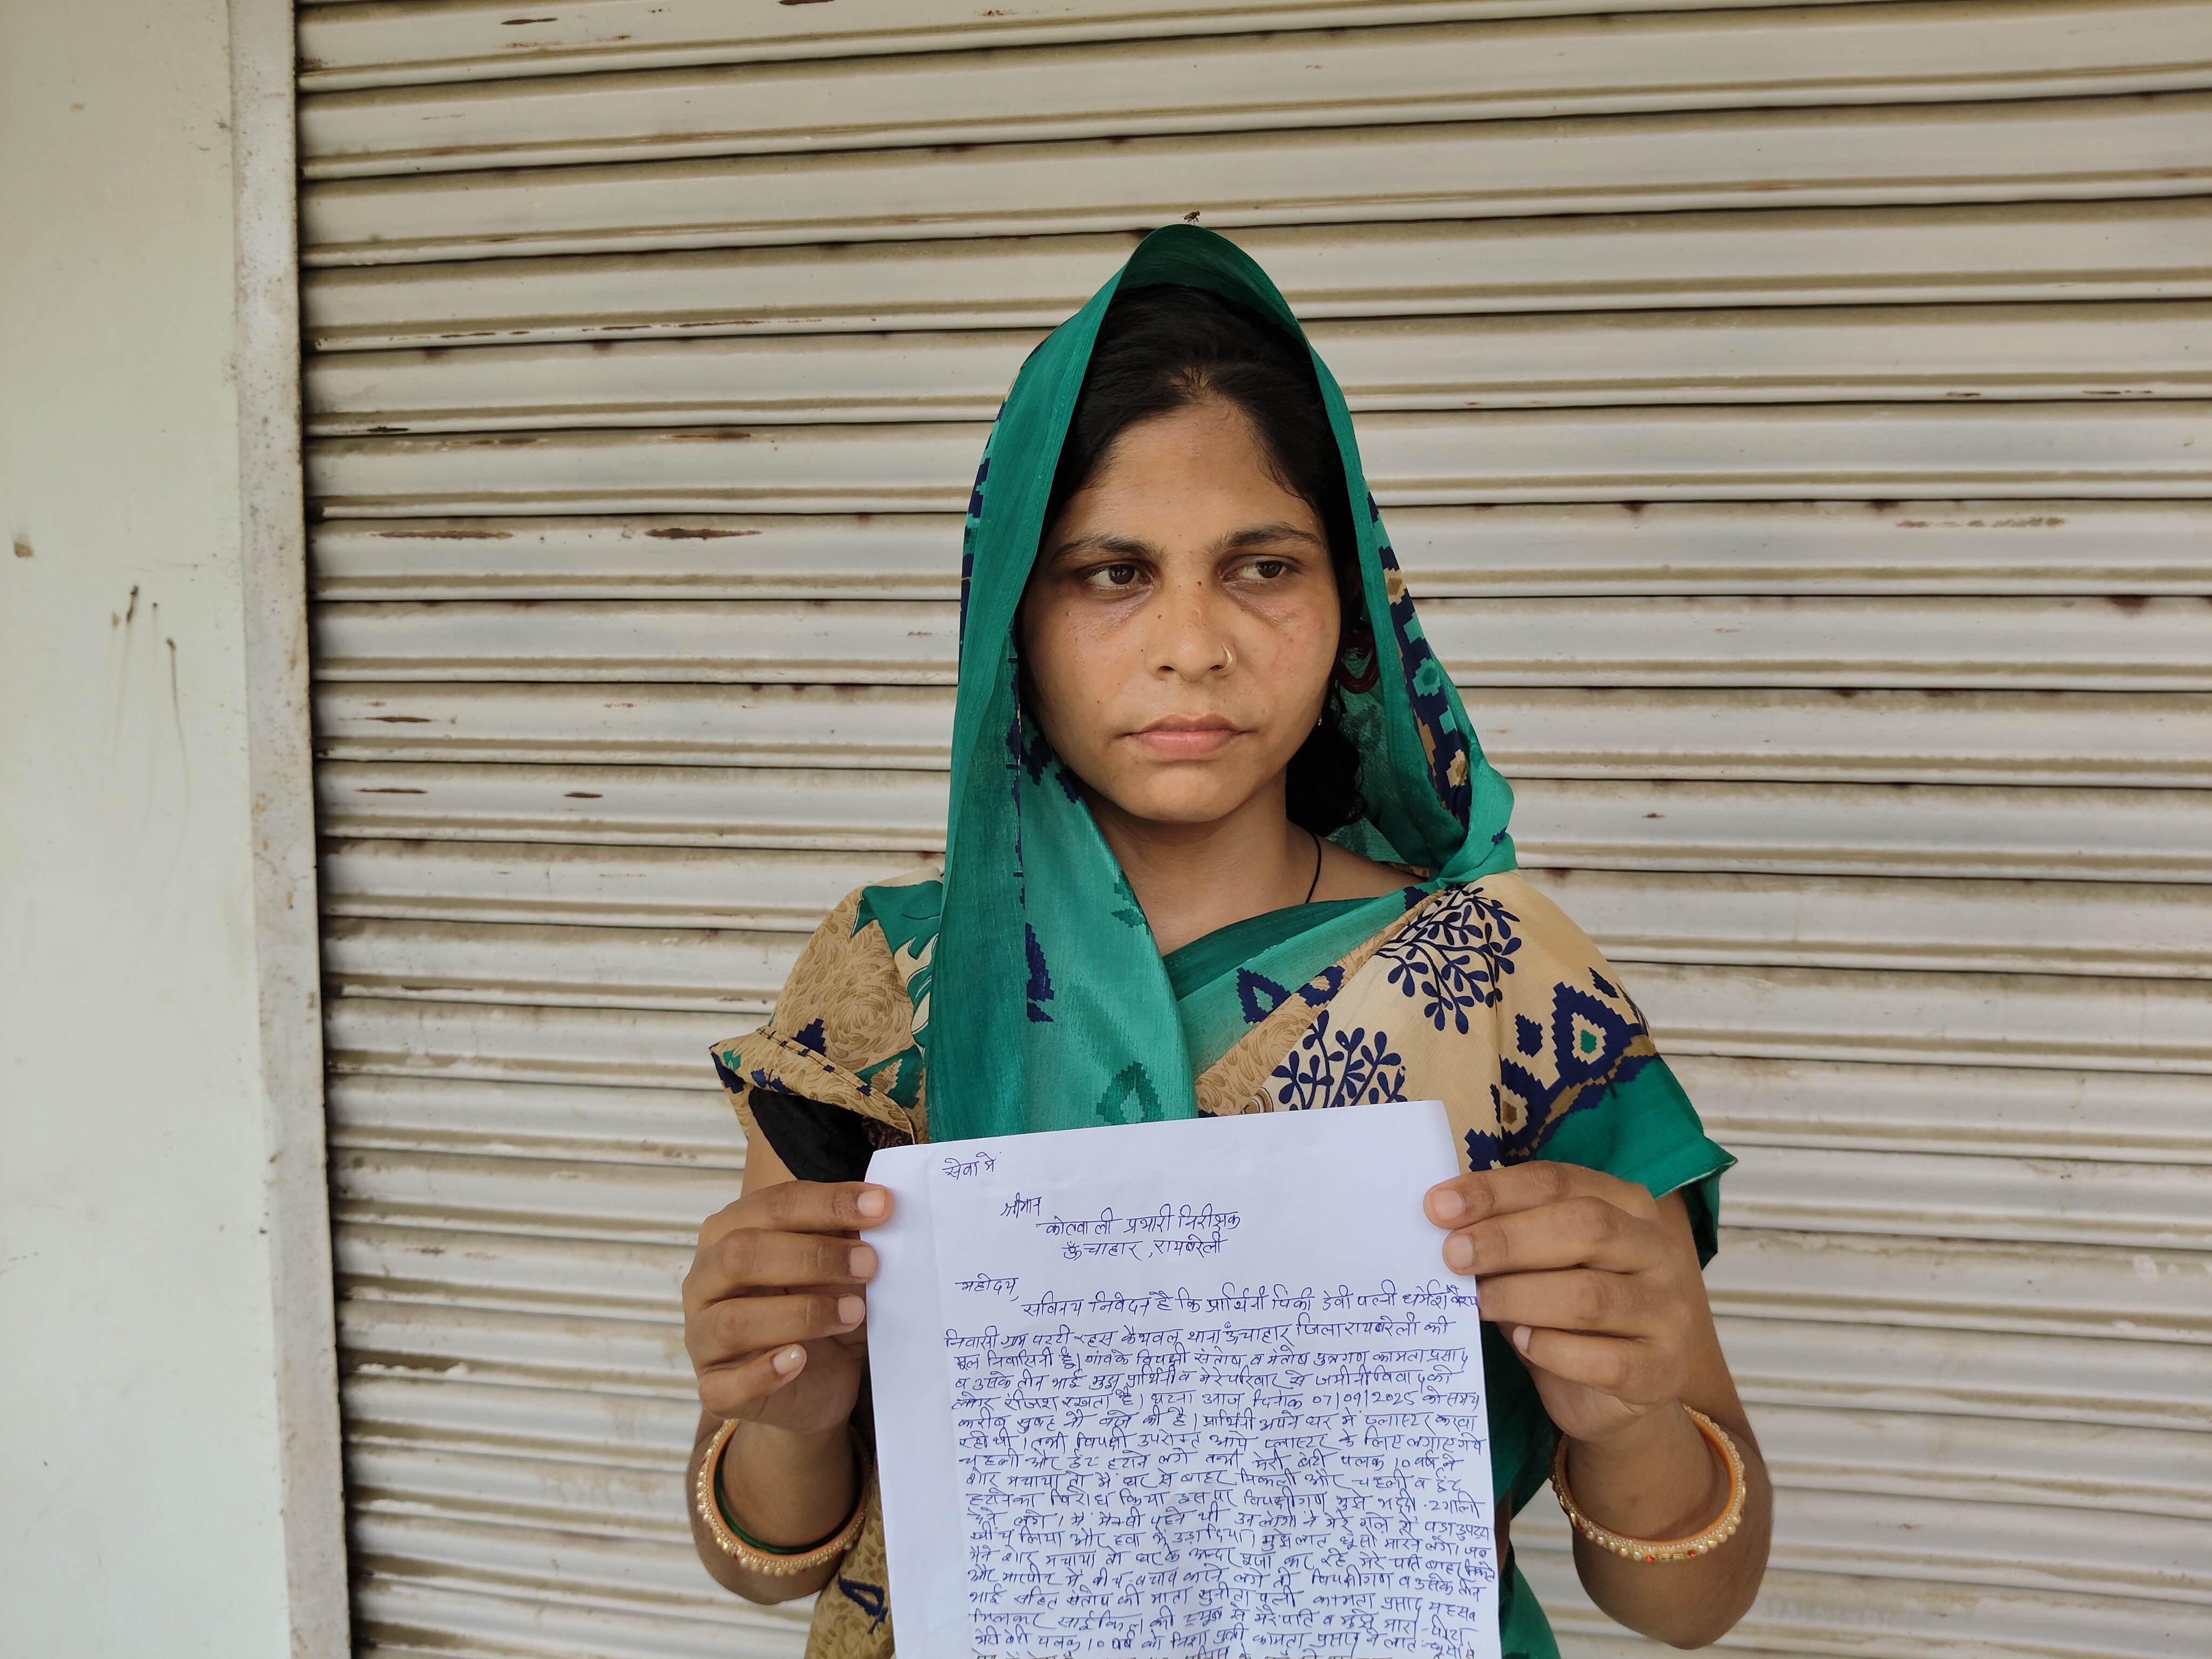 सेवा में
श्रीमान
कोतवाली प्रभारी निरीक्षक
ऊँचाहार, रायबरेली
महोदय
सविनय निवेदन है कि प्रार्थिनी पिंकी देवी पत्नी धर्मेश वैश्य
निवासी ग्राम पट्टी रहस कैथवल थाना ऊँचाहार जिला रायबरेली की
मूल निवासिनी है। गांव के विपक्षी संतोष व मंतोष पुत्रगण कामता प्रसाद
व उसके तीन भाई मुझ प्रार्थिनी व मेरे परिवार से जमीनी विवाद को
लेकर रंजिश रखता है। घटना आज दिनांक 07/09/2025 को समय
करीब सुबह नौ बजे की है। प्रार्थिनी अपने घर में प्लास्टर करवा
रही थी। तभी विपक्षी उपरोक्त आये प्लास्टर के लिए लगाए गये
चहली और ईंट हटाने लगे तभी मेरी बेटी पलक 10 वर्ष ने
शोर मचाया तो मैं घर से बाहर निकली और चहली व ईंट
हटाने का विरोध किया इस पर विपक्षीगण मुझे भद्दी-2 गाली
देने लगे। मैं मैक्सी पहने थी उन लोगों ने मेरे गले से पड़ा दुपट्टा
खींच लिया और हवा में उड़ा दिया। मुझे लात घूसों मारने लगे। जब
मैंने शोर मचाया तो घर के अन्दर पूजा कर रहे मेरे पति बाहर निकले
और मारपीट में बीच बचाव करने लगे तो विपक्षीगण व उसके तीन
भाई सहित संतोष की माता सुनीता पत्नी कामता प्रसाद
मिलकर साईकिल की ट्यूब से मेरे पति व मुझे मारा-पीटा
मेरी बेटी पलक 10 वर्ष को निशा पुत्री कामता प्रसाद ने लात-घूसों से